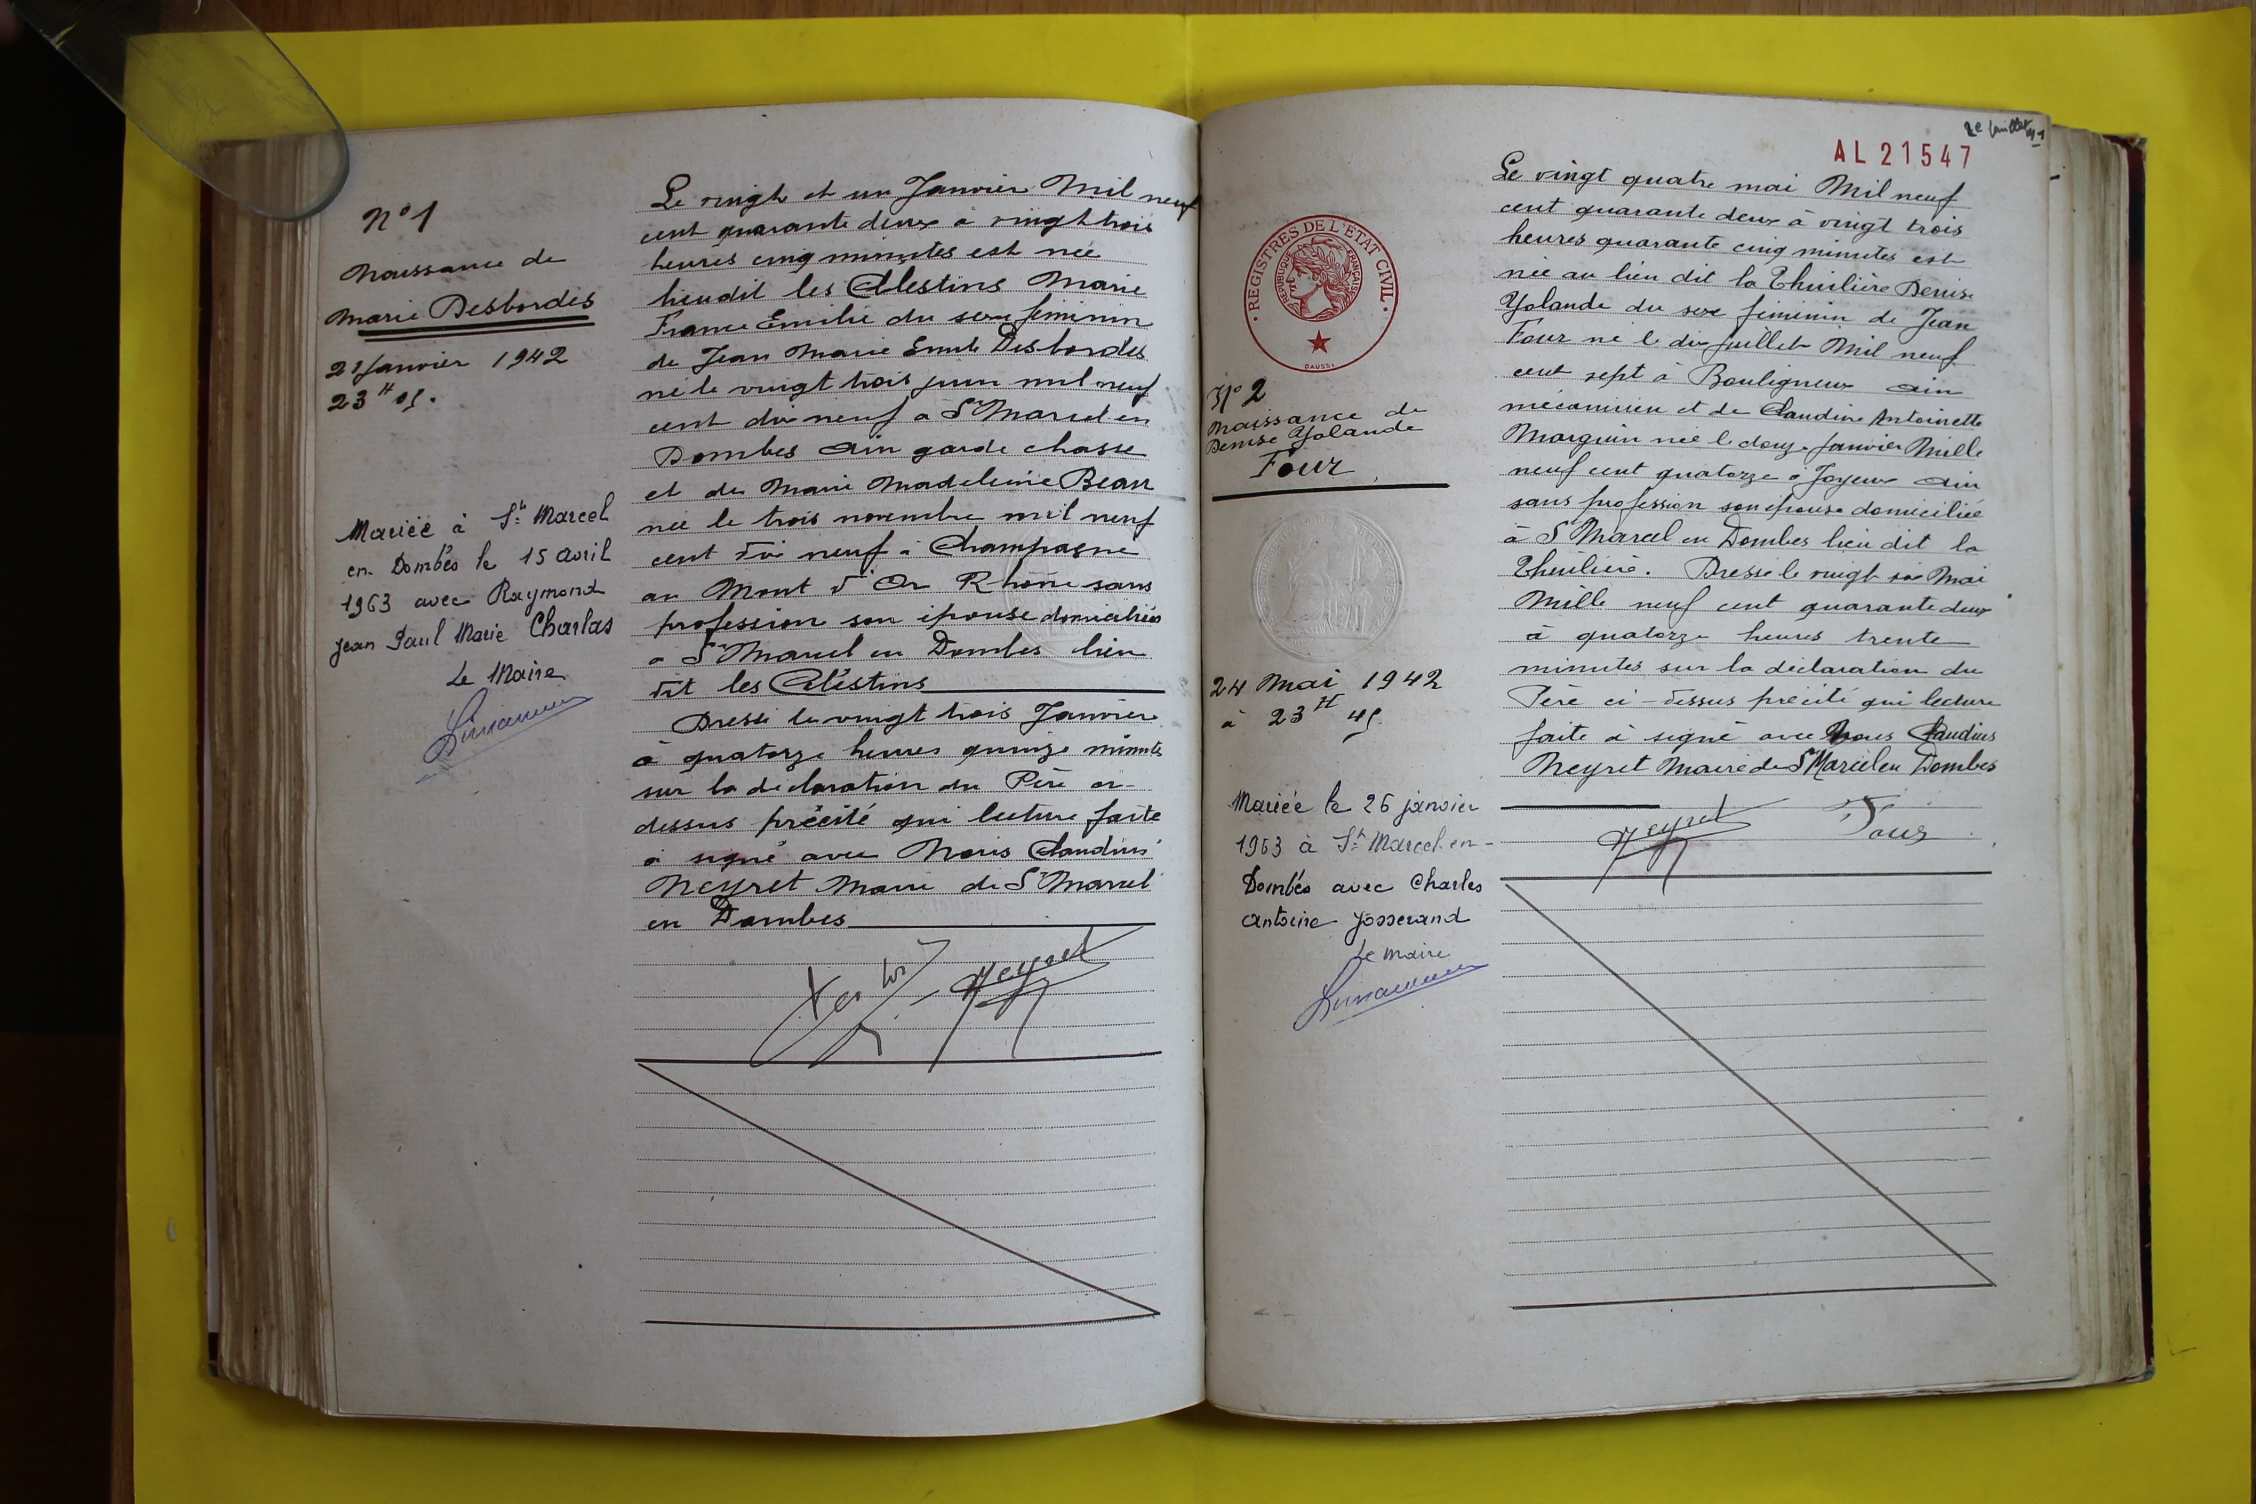 N° 1
Naissance de
Marie Desbordes
21 Janvier 1942
23 H 05.
Mariée à St Marcel
en Dombes le 15 avril
1963 avec Raymond
Jean Paul Marie Charlas
Le Maire
Le vingt et un Janvier Mil neuf
cent quarante deux à vingt trois
heures cinq minutes est née
lieudit les Célestins Marie
France Emilie du sexe féminin
de Jean Marie Emile Desbordes
né le vingt trois juin mil neuf
cent dix neuf à St Marcel en
Dombes Ain garde chasse
et de Marie Madeleine Bean
née le trois novembre mil neuf
cent dix neuf à Champagne
au Mont d'Or Rhône sans
profession son épouse domiciliés
à St Marcel en Dombes lieu
dit les Célestins
Dressé le vingt trois Janvier
à quatorze heures quinze minutes
sur la déclaration du Père ci-
dessus précité qui lecture faite
à signé avec Nous Claudius
Neyret Maire de St Marcel
en Dombes
Neyret
2e feuillet
AL 21547
REGISTRES DE L'ÉTAT CIVIL
RÉPUBLIQUE FRANÇAISE
DAUSSI
N° 2
Naissance de
Denise Yolande
Four
24 Mai 1942
à 23 H 45
Mariée le 26 janvier
1963 à St Marcel-en-
Dombes avec Charles
Antoine Josserand
Le Maire
Le vingt quatre mai Mil neuf
cent quarante deux à vingt trois
heures quarante cinq minutes est
née au lieu dit la Thuilière Denise
Yolande du sexe féminin de Jean
Four né le dix juillet Mil neuf
cent sept à Bouligneux Ain
mécanicien et de Claudine Antoinette
Marguin née le douze Janvier Mille
neuf cent quatorze à Joyeux Ain
sans profession son épouse domiciliée
à St Marcel en Dombes lieu dit la
Thuilière. Dressé le vingt six Mai
Mille neuf cent quarante deux
à quatorze heures trente
minutes sur la déclaration du
Père ci-dessus précité qui lecture
faite à signé avec Nous Claudius
Neyret Maire de St Marcel en Dombes
Neyret Four